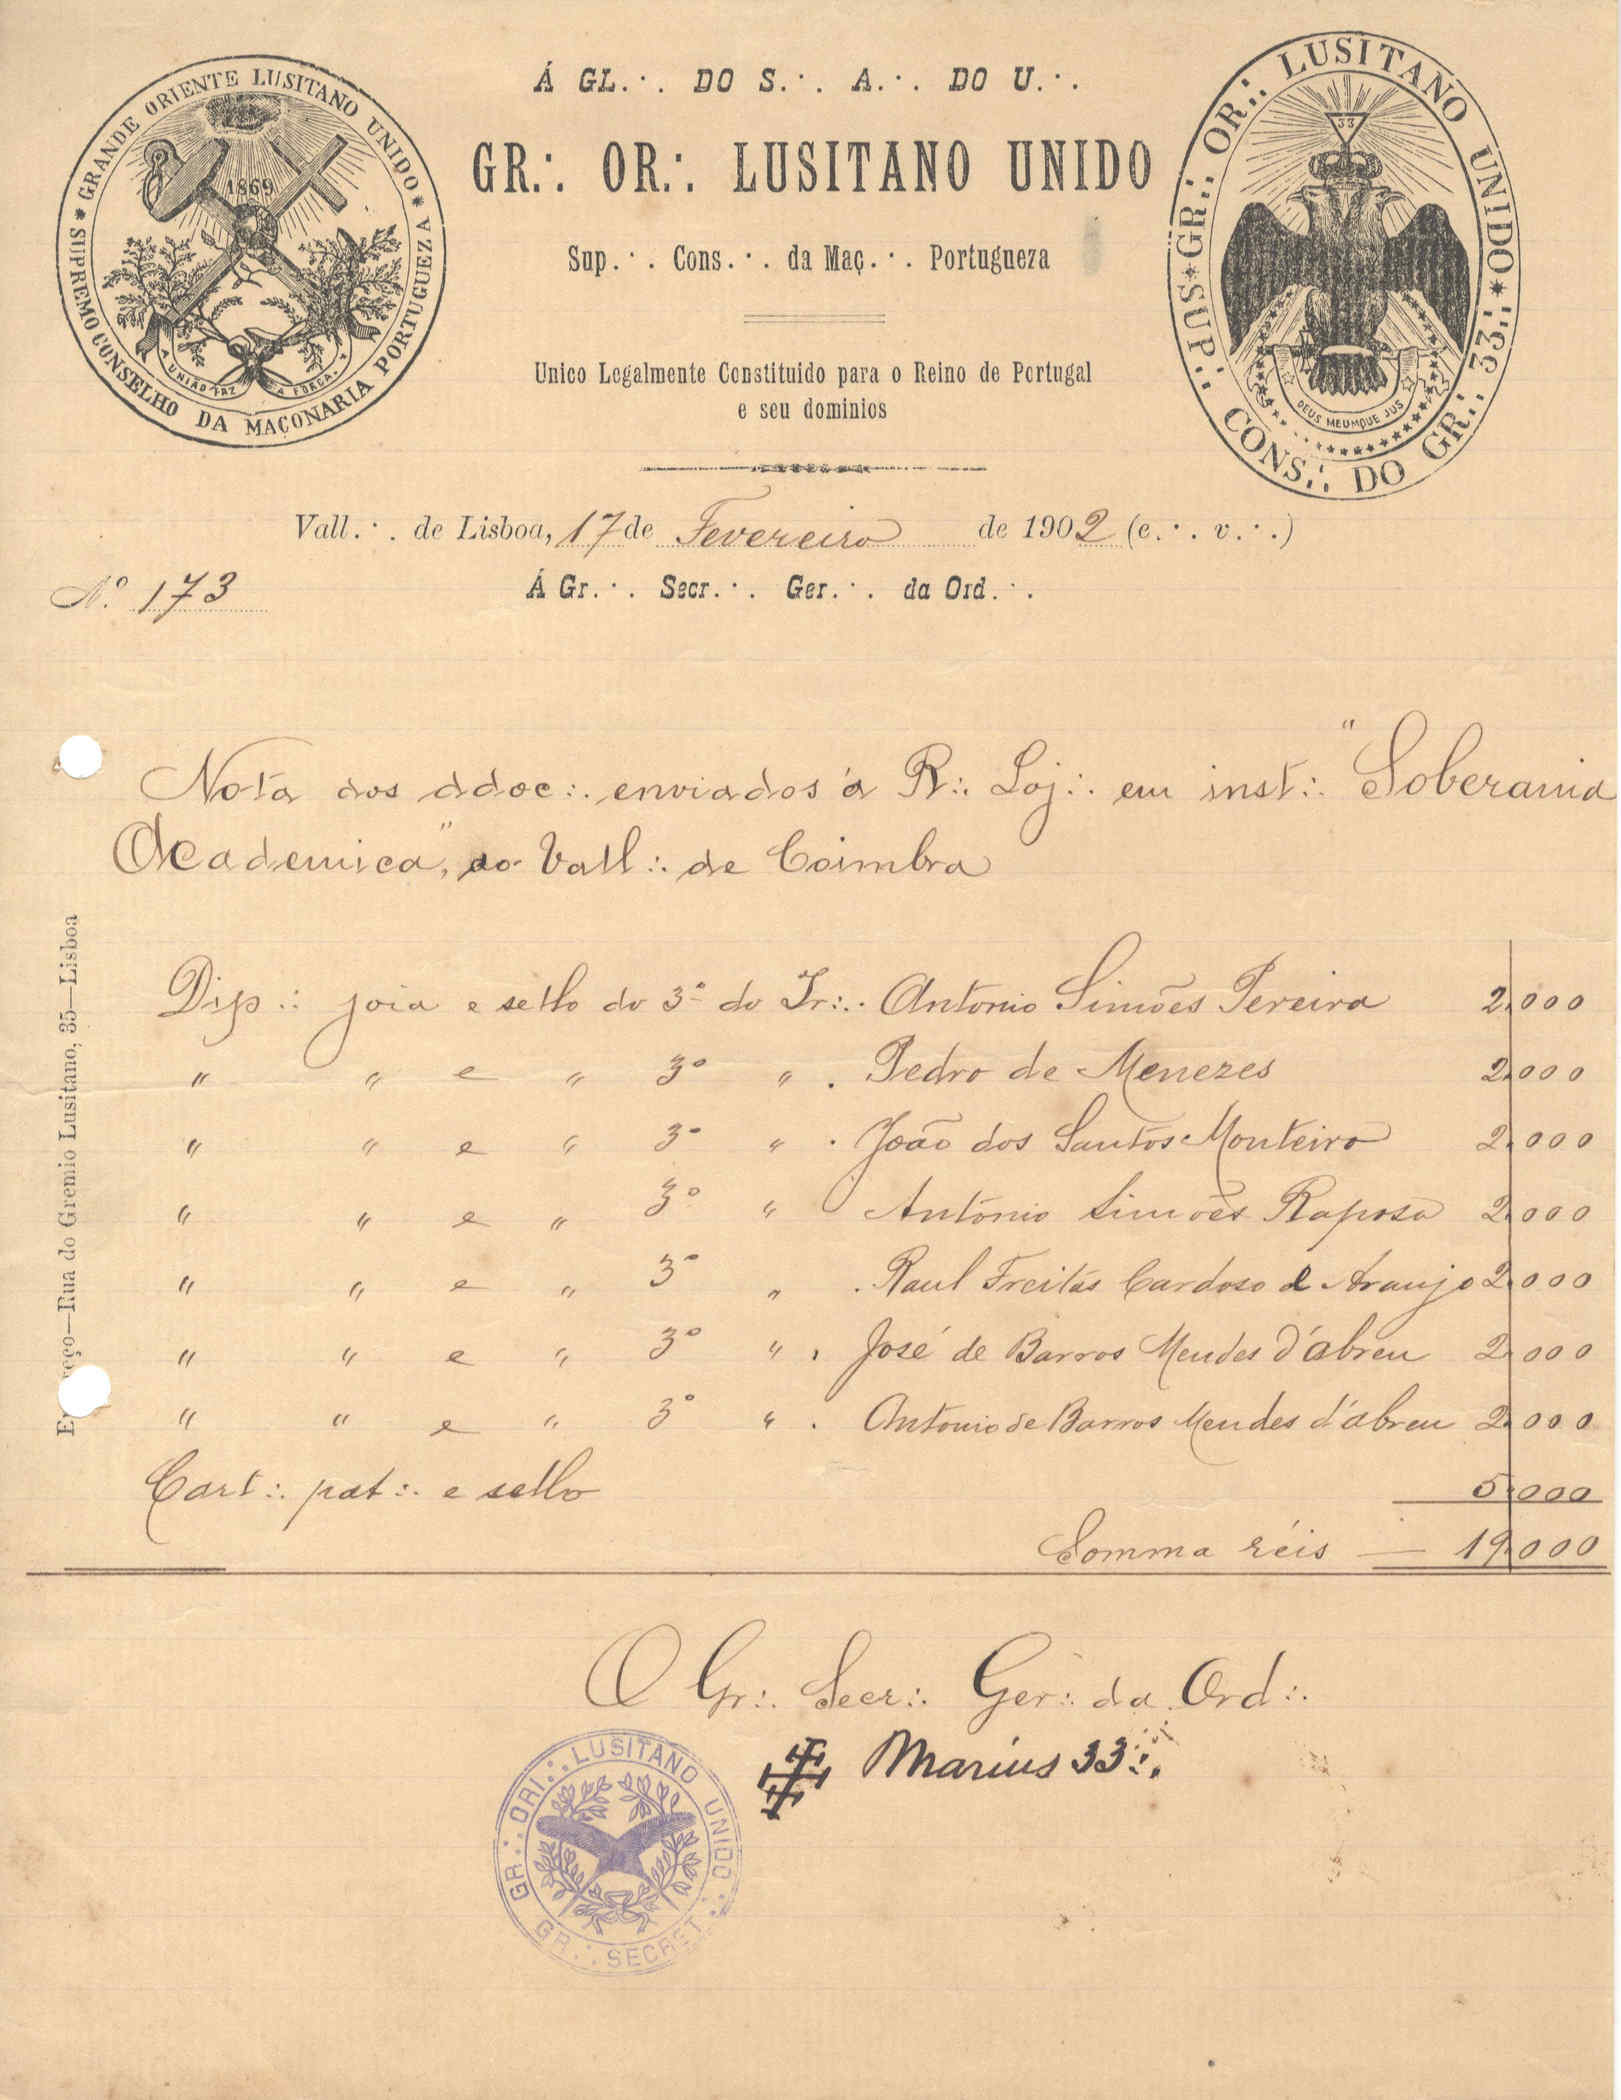 * GRANDE ORIENTE LUSITANO UNIDO * SUPREMO CONSELHO DA MAÇONARIA PORTUGUEZA
1869
A UNIÃO FAZ A FORÇA.
Á GL.·. DO S.·. A.·. DO U.·.
GR.·. OR.·. LUSITANO UNIDO
Sup.·. Cons.·. da Maç.·. Portugueza
Unico Legalmente Constituido para o Reino de Portugal
e seu dominios
GR.·. OR.·. LUSITANO UNIDO * SUP.·. CONS.·. DO GR.·. 33.·. *
33
DEUS MEUMQUE JUS
Vall.·. de Lisboa, 17 de Fevereiro de 1902 (e.·. v.·.)
N.º 173
Á Gr.·. Secr.·. Ger.·. da Ord.·.
Nota dos ddoc.·. enviados á R.·. Loj.·. em inst.·. "Soberania
Academica", ao Vall.·. de Coimbra
Dip.·. joia e sello do 3º do Ir.·. Antonio Simões Pereira 2.000
" " e " 3º " . Pedro de Menezes 2.000
" " e " 3º " . João dos Santos Monteiro 2.000
" " e " 3º " Antonio Simões Raposo 2.000
" " e " 3º " . Raul Freitas Cardoso e Araujo 2.000
" " e " 3º " . José de Barros Mendes d'abreu 2.000
" " e " 3º " . Antonio de Barros Mendes d'abreu 2.000
Cart.·. pat.·. e sello 5.000
Somma réis — 19.000
O Gr.·. Secr.·. Ger.·. da Ord.·.
Marius 33.·.
GR.·. ORI.·. LUSITANO UNIDO
GR.·. SECRET.·.
Rua do Gremio Lusitano, 35—Lisboa